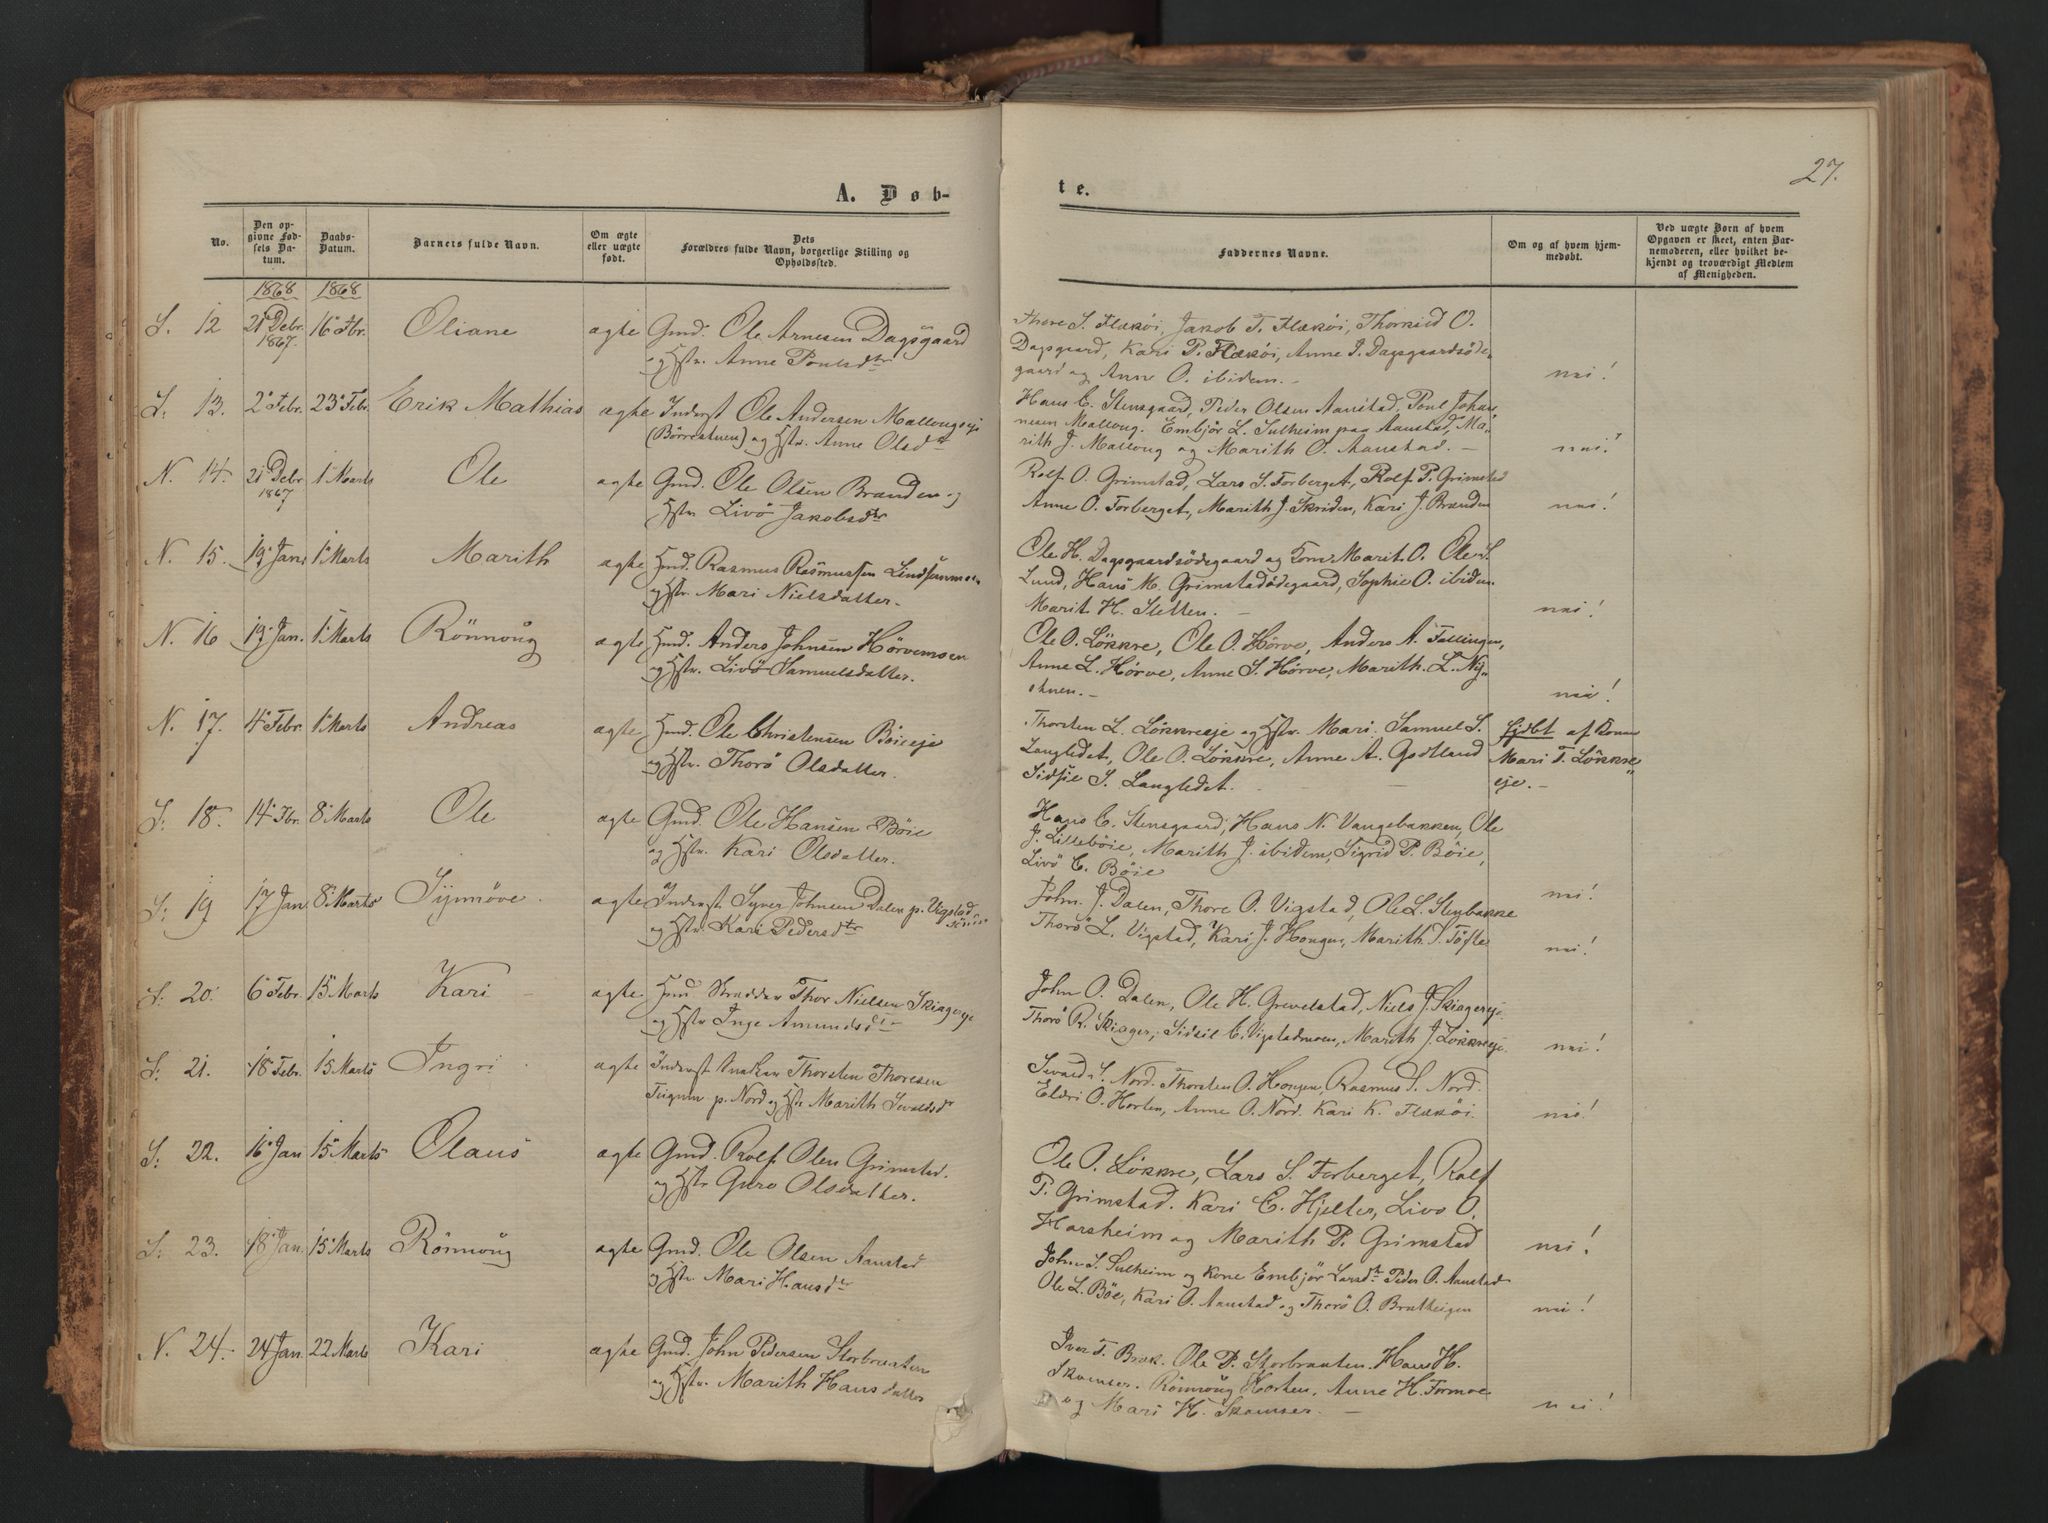 27.
A. Døb-
te.
No.
Den op-
givne Fød-
sels Da-
tum.
Daabs-
Datum.
Barnets fulde Navn.
Om ægte
eller uægte
født.
Dets
Forældres fulde Navn, borgerlige Stilling og
Opholdssted.
Faddernes Navne.
Om og af hvem hjem-
medøbt.
Ved uægte Børn af hvem
Opgaven er skeet, enten Bar-
nemoderen, eller hvilket be-
kjendt og troværdigt Medlem
af Menigheden.
1868 1868
S. 12 21 Debr. 16 Fbr. Oliane ægte Gmd. Ole Arnesen Dagsgaard
1867. og Hstr. Anne Poulsdtr
Thore S. Flækøi, Jakob T. Flækøi, Thorkild O.
Dagsgaard, Kari P. Flækøi, Anne J. Dagsgaardsøde-
gaard og Anne O. ibidem. - nei!
S. 13. 2 Febr. 23 Febr. Erik Mathias ægte Inderst Ole Andersen Mallongseje
(Börrestuen) og Hstr. Anne Olsdtr
Hans C. Stensgaard, Peder Olsen Aanstad, Poul Johan-
nesen Mallong. Embjör L. Sulheim paa Aanstad, Ma-
rith J. Mallong og Marith O. Aanstad. - nei!
N. 14. 21 Debr 1 Marts Ole ægte Gmd. Ole Olsen Branden og
1867 Hstr. Livö Jakobsdtr
Rolf O. Grimstad, Lars S. Forberget, Rolf P. Grimstad
Anne O. Forberget, Marith J. Skriden, Kari J. Branden nei!
N. 15. 19 Jan. 1 Marts Marith ægte Hmd. Rasmus Rasmussen Lindsømoen
og Hstr. Mari Nielsdatter.
Ole H. Dagsgaardsödegaard og Kone Marit O. Ole S.
Lund, Hans M. Grimstadödegaard, Sophie O. ibidem.
Marit H. Sletten. - nei!
N. 16 19 Jan. 1 Marts Rönnoug ægte Hmd. Anders Johnsen Hörvemoen
og Hstr. Livö Samuelsdatter.
Ole O. Løkkre, Ole O. Hörve, Anders A. Tallingen,
Anne L. Hörve, Anne S. Hörve, Marith L. Ny-
stuen. - nei!
N. 17. 4 Febr. 1 Marts Andreas ægte Hmd. Ole Christensen Böieeje
og Hstr. Thorö Olsdatter.
Thorsten L. Løkkreeje og Hstr. Mari. Samuel S.
Langledet, Ole O. Løkkre, Anne A. Godtland
Sidsie S. Langledet.
hjdbt af Konen
Mari T. Løkkre-
eje. -
S. 18. 14 Fbr. 8 Marts Ole ægte Gmd. Ole Hansen Böie
og Hstr. Kari Olsdatter.
Hans C. Stensgaard, Hans N. Vangsbakken, Ole
J. Lilleböie, Marith J. ibidem, Sigrid P. Böie,
Livö C. Böie nei!
S. 19 17 Jan. 8 Marts Synnöve ægte Inderst Syver Johnsen Dalen p. Vigstad
og Hstr. Kari Pedersdtr
John J. Dalen, Thore O. Vigstad, Ole L. Stenbakke
Thorö L. Vigstad, Kari J. Hongen, Marith S. Tofte nei!
S. 20. 6 Febr. 15 Marts Kari ægte Hmd Skrædder Thor Nielsen Skiagereje
og Hstr Inge Amundsdtr
John O. Dalen, Ole H. Grevelstad, Niels J. Skiagereje
Thorö R. Skiager, Sidsil C. Vigstadmoen, Marith J. Løkkreeje. nei!
S. 21. 18 Febr. 15 Marts Ingri ægte Inderst Snedker Thorsten Thoresen
Teigum p. Nord og Hstr Marith Ivaldsdtr
Sevald S. Nord. Thorsten O. Hongen, Rasmus S. Nord.
Eldri O. Horten, Anne O. Nord. Kari K. Flækøi. nei!
S. 22. 16 Jan 15 Marts Olaus ægte Gmd. Rolf Olsen Grimstad.
og Hstr Guro Olsdatter.
Ole O. Løkkre, Lars S. Forberget, Rolf
P. Grimstad. Kari C. Hjelter, Livö O.
Harsheim og Marith P. Grimstad nei!
S. 23. 18 Jan. 15 Marts Rönnoug ægte Gmd. Ole Olsen Aanstad
og Hstr. Mari Hansdtr
John S. Sulheim og Kone Embjör Larsdtr Peder O. Aanstad
Ole L. Böe, Kari O. Aanstad og Thorö O. Bratteigen nei!
N. 24. 24 Jan. 22 Marts Kari ægte Gmd. John Pedersen Storbraaten
og Hstr. Marith Hansdatter
Iver T. Bræk. Ole P. Storbraaten. Hans H.
Skamser. Rönnoug Horten, Anne H. Formoe
og Mari H. Skamser. - nei!